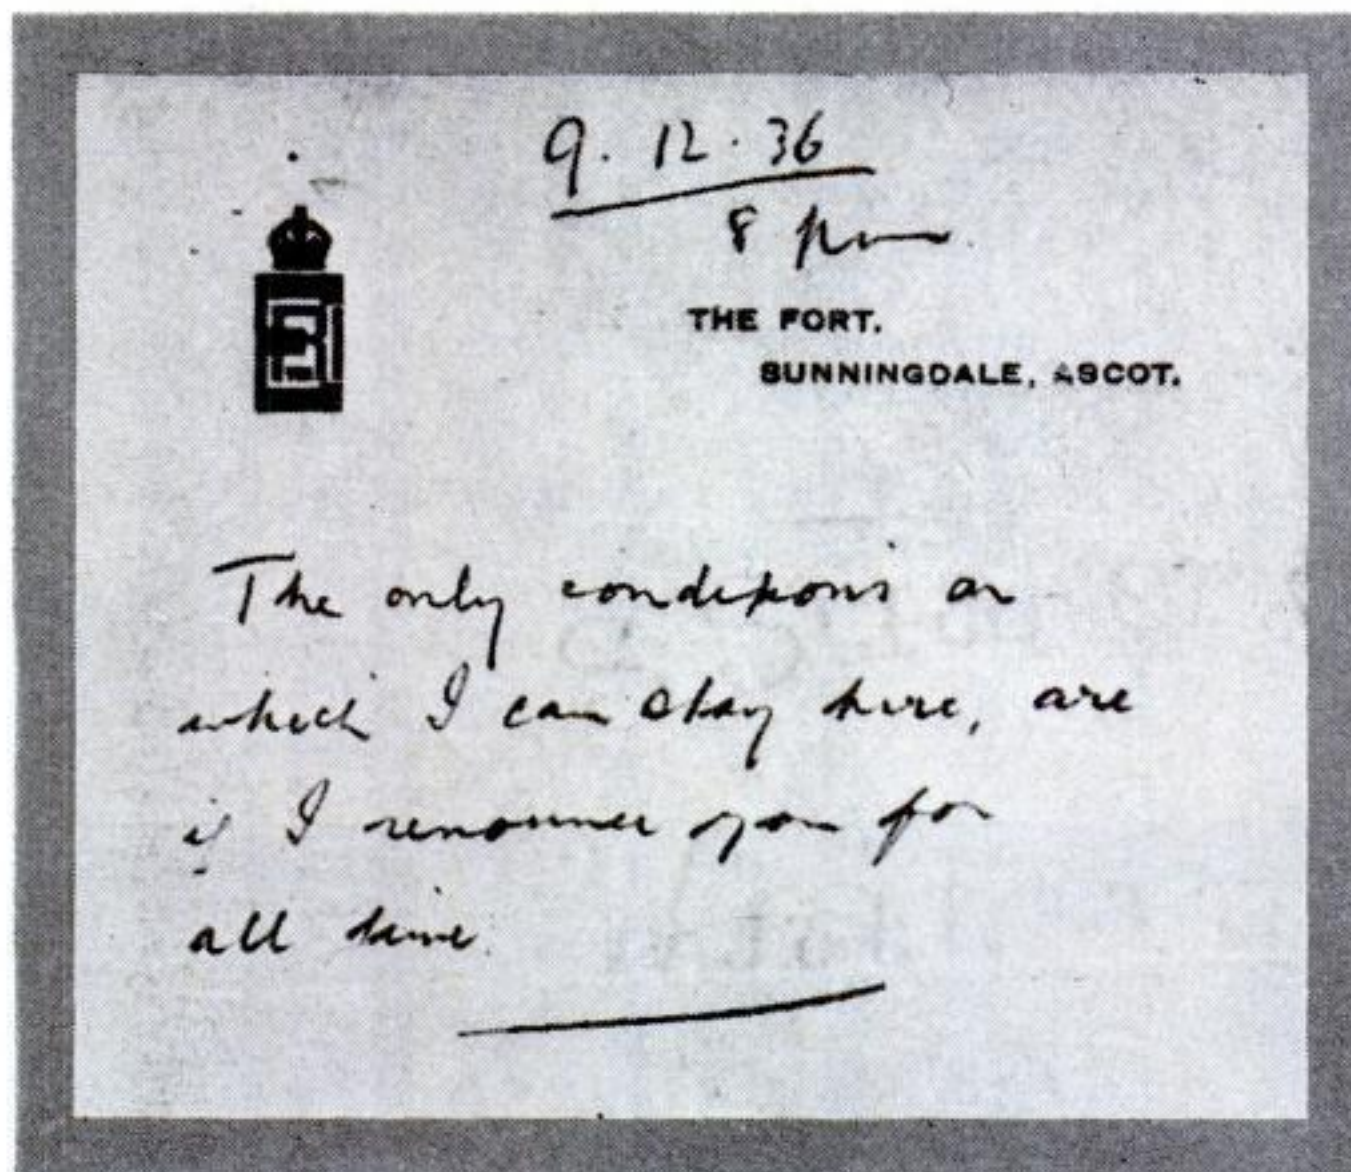 9.12.36
8 pm
THE FORT.
SUNNINGDALE, ASCOT.
The only conditions on
which I can stay here, are
if I renounce you for
all time